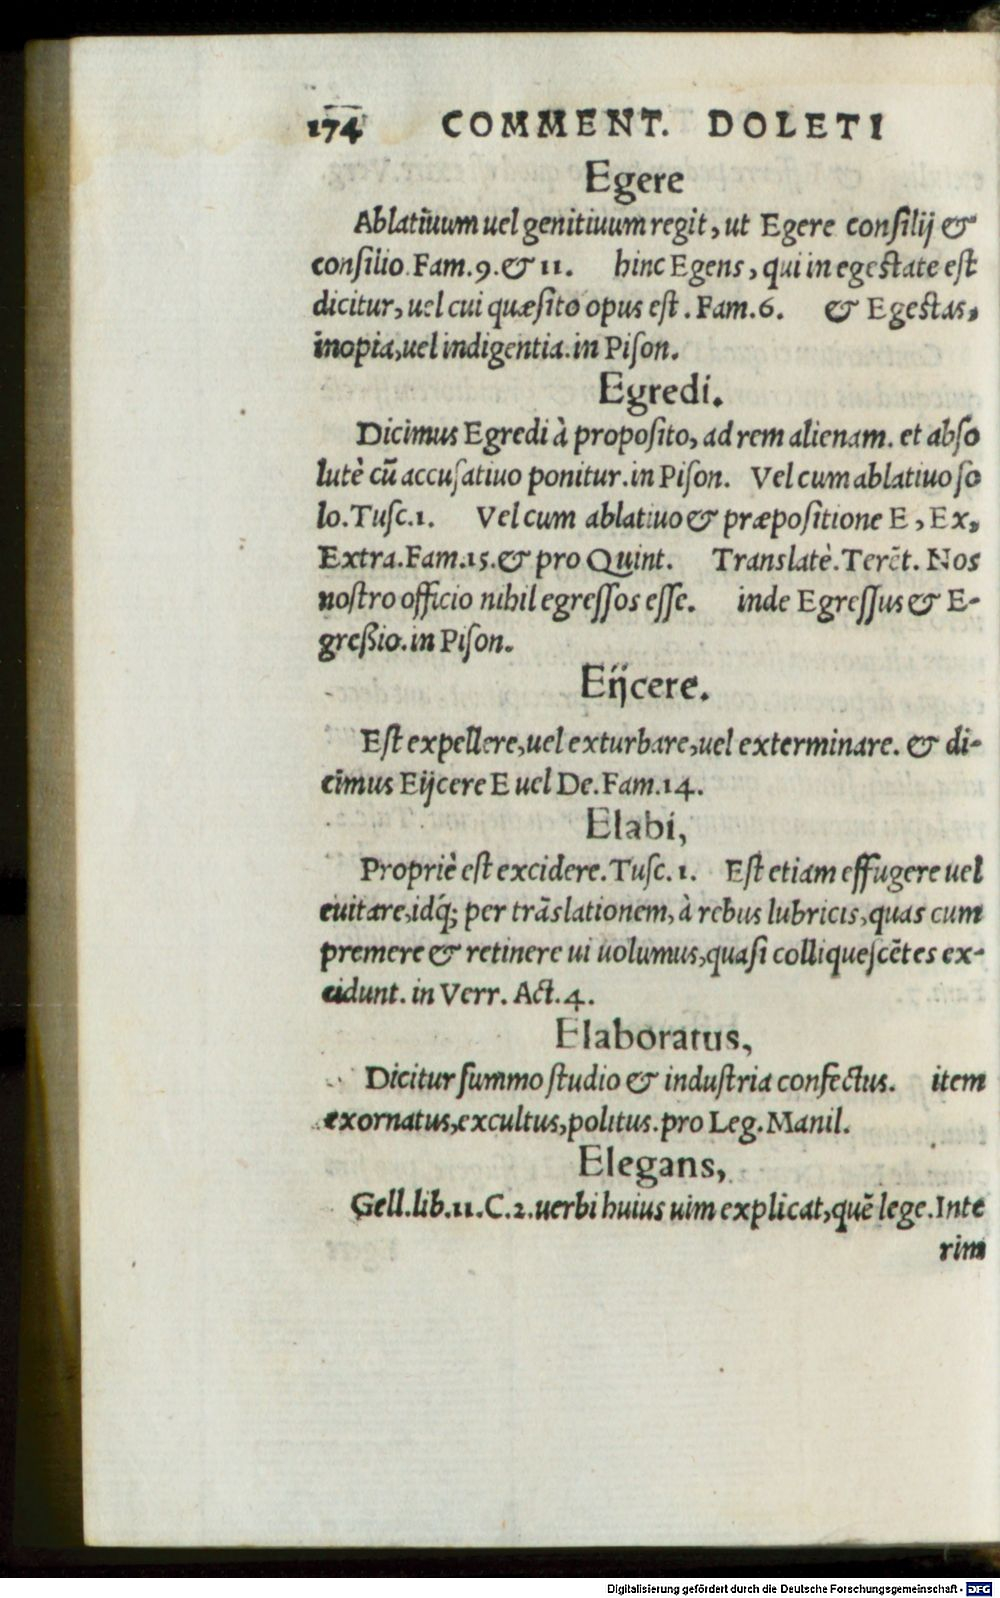 174 COMMENT. DOLETI
Egere
Ablatiuum uel genitiuum regit, ut Egere consilij &
consilio Fam.9.& 11. hinc Egens, qui in egestate est
dicitur, uel cui quæsito opus est. Fam.6. & Egestas,
inopia, uel indigentia.in Pison.
Egredi.
Dicimus Egredi à proposito, ad rem alienam. et abso
lutè cū accusatiuo ponitur.in Pison. Vel cum ablatiuo so
lo.Tusc.1. Vel cum ablatiuo & præpositione E, Ex,
Extra.Fam.15.& pro Quint. Translatè.Terēt. Nos
nostro officio nihil egressos esse. inde Egressus & E-
greßio.in Pison.
Eijcere.
Est expellere, uel exturbare, uel exterminare. & di-
cimus Eijcere E uel De.Fam.14.
Elabi,
Propriè est excidere.Tusc.1. Est etiam effugere uel
euitare, idq́; per trāslationem, à rebus lubricis, quas cum
premere & retinere ui uolumus, quasi colliquescētes ex-
cidunt. in Verr. Act.4.
Elaboratus,
Dicitur summo studio & industria confectus. item
exornatus, excultus, politus.pro Leg.Manil.
Elegans,
Gell.lib.11.C.2.uerbi huius uim explicat, quē lege.Inte
rim
Digitalisierung gefördert durch die Deutsche Forschungsgemeinschaft - DFG